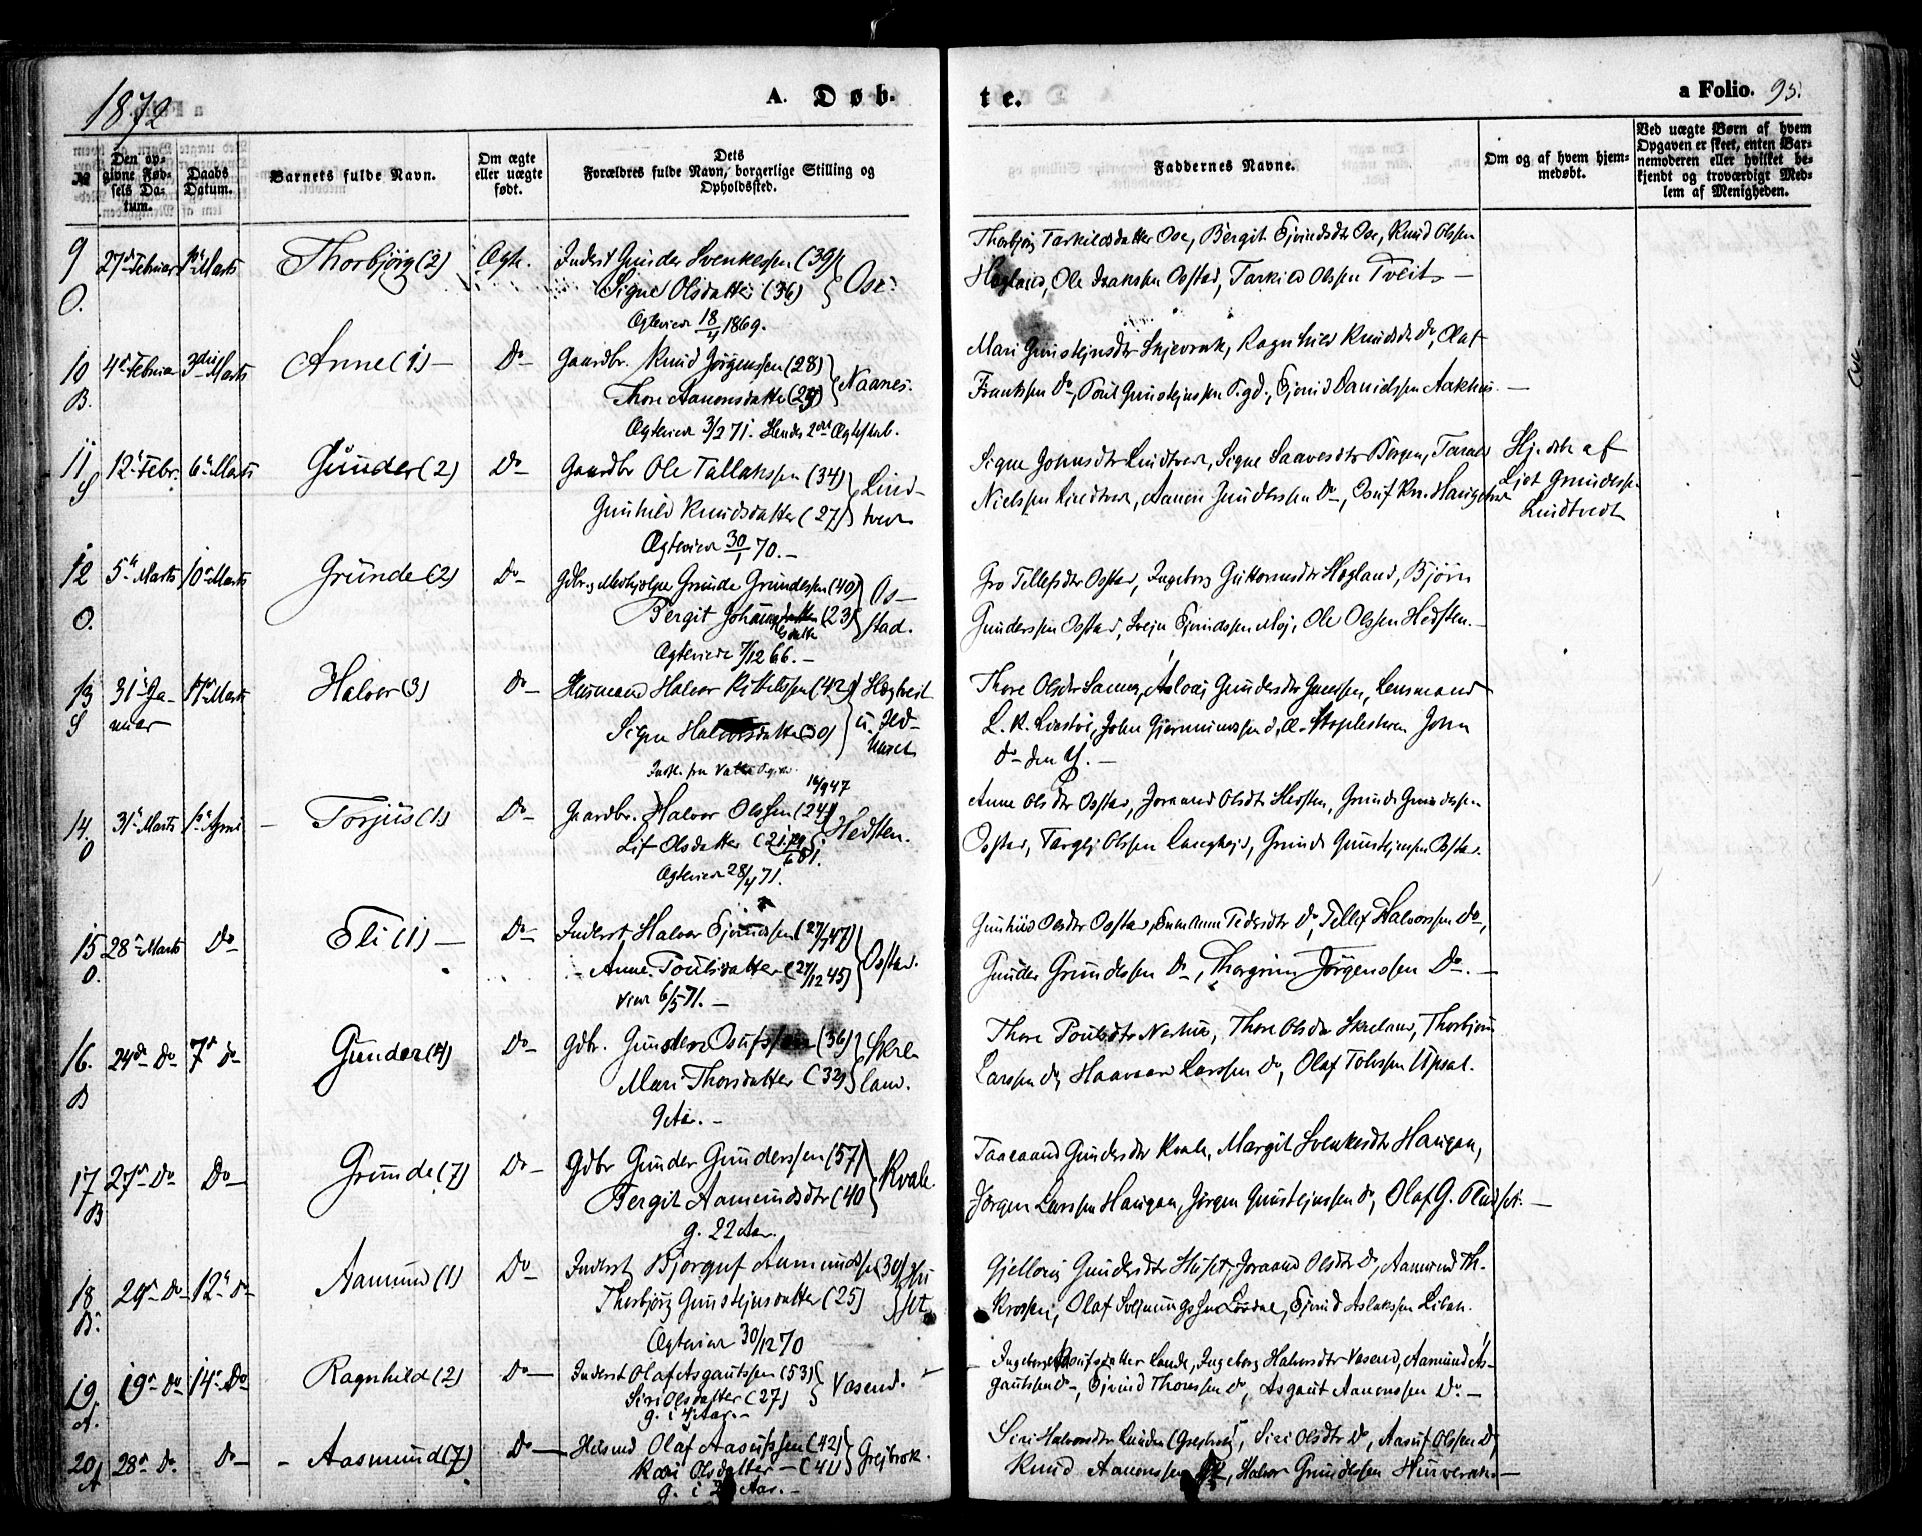 1872
A. Døb-
te.
a Folio. 95.
№
Den op-
givne Fød-
sels Da-
tum.
Daabs
Datum.
Barnets fulde Navn.
Om ægte
eller uægte
født.
Dets
Forældres fulde Navn, borgerlige Stilling og
Opholdssted.
Faddernes Navne.
Om og af hvem hjem-
medøbt.
Ved uægte Børn af hvem
Opgaven er skeet, enten Bar-
nemoderen eller hvilket be-
kjendt og troværdigt Med-
lem af Menigheden.
9 27de Februar 1ste Marts Thorbjörg (2) Ægte. Inderst Gunder Svenkessen (39)
O. Signe Olsdatter (36) Ose.
Ægteviede 18/11 1869.
Thorbjörg Tarkildsdatter Ose, Bergit Ejvindsdtr Ose, Knud Olssen
Hegland, Ole Isakssen Ostad, Tarkild Olssen Tveit —
10 4de Februar 3die Marts Anne (1) — Do — Gaardbr. Knud Jörgenssen (28)
B. Thore Aanonsdatter (29) Naanes.
Ægteviede 3/2 71. Hendes 2det Ægteskab.
Mari Gunstejnsdtr Skjevrak, Ragnhild Knudsdtr Do, Olaf
Frantssen Do, Poul Gunstejnssen, Ejvind Danielssen Aakhus —
11 12te Febr. 6te Marts Gunder (2) Do — Gaardbr Ole Tallakssen (34) Lind-
S Gunhild Knudsdatter (27) tvedt
Ægteviede 30/1 70. —
Signe Johnsdtr Lindtvedt, Signe Saavesdtr Bergen,
Nielssen Lindtvedt, Aanon Gunderssen Do —, Osuf Kn. Haugetvedt
Hj. dbt af
Ljot Grundessen
Lindtvedt
12 5te Marts 10de Marts Grunde (2) Do — Gdbr. Grunde Grundessen (40) Os-
O. Bergit (23) stad.
Ægteviede 7/12 66. —
Gro Tellefsdtr Ostad, Ingeborg Guttormsdtr Hegland, Björn
Gunderssen Ostad, Svejn Ejvindssen Moj, Ole Olssen Hedsten. —
13 31te Ja- 17de Marts Halvor (3) Do — Husmand Halvor Kittelssen (42) Hægtveit
S nuar Signe Halvorsdatter (30) u.
huset
Thore Olsdtr, Aslaug Gundersdtr, Lensmand
L. K., John Gjermundssen d. Æ. Stoplestveen John
Do — den Y. —
14. 31te Marts 1ste April — Torjus (1) Do — Gaardbr. Halvor Olssen (24)
O Lif Olsdatter (21) Hedsten.
Ægteviede 28/4 71.
Anne Olsdtr Ostad, Joraand Olsdtr Hedsten, Grunde Grundessen
Ostad, Targej Olssen, Grunde Gunstejnssen Ostad.
15 28de Marts Do — Eli (1) — Do — Inderst Halvor Ejvindssen (27/ 47)
O. Anne Poulsdatter (21/12 45) Ostad.
Viede 6/5 71. —
Gunhild Olsdtr Ostad, Pedersdtr Do, Tellef Halvorssen Do,
Gunder Grundessen Do, Thorgrim Jörgenssen Do. —
16. 24de Do 7de Do Gunder (4) Do — Gdbr. Gunsten Osufssen (36) Skre-
B Mari Thorsdatter (32) land.
9 Aar. —
Thore Poulsdtr, Thore Olsdtr Skreland, Thorbjörn
Larssen Do, Haavard Larssen Do, Olaf Tolvssen Upsal.
17 27de Do Do — Grunde (7) Do — Gdbr Gunder Gunderssen (57) Kvale
B Bergit Aamundsdtr (40
g. 22 Aar.
Taaraand Gundersdtr Kvale, Margit Svenkesdtr Haugan,
Jörgen Larssen Haugan, Jörgen Gunstejnssen Do, Olaf G. —
18 29de Do 12te Do Aamund (1) Do — Inderst Bjorguf Aamundssen (30) Hu-
B. Thorbjörg Gunstejnsdatter (25) set
Ægteviede 30/12 70
Gjellaug Gundersdtr Huset, Joraand Olsdtr Do, Aamund Th.
Krossen, Olaf Svejnungssen Lordal, Ejvind Aslakssen Libak.
19 19de Do 14de Do Ragnhild (2) Do — Inderst Olaf Asgautssen (53)
A. Siri Olsdatter (27) Vasend.
g. i 4 Aar. —
Ingeborg Aasufsdatter Lande, Ingeborg Halvorsdtr Vasend, Aamund As-
gautssen Do —, Ejvind Thomssen Do, Asgaut Aanonssen Do —
20 28de Do. Do — Aasmund (7) Do — Husmd Olaf Aasufssen (42)
A Kari Olsdatter — (41) Grejbrok.
g. i Aar. —
Siri Halvorsdtr Lunden (Grejbrok), Siri Olsdtr Do, Aasuf Olssen Do,
Knud Aanonssen, Halvor Grundessen —